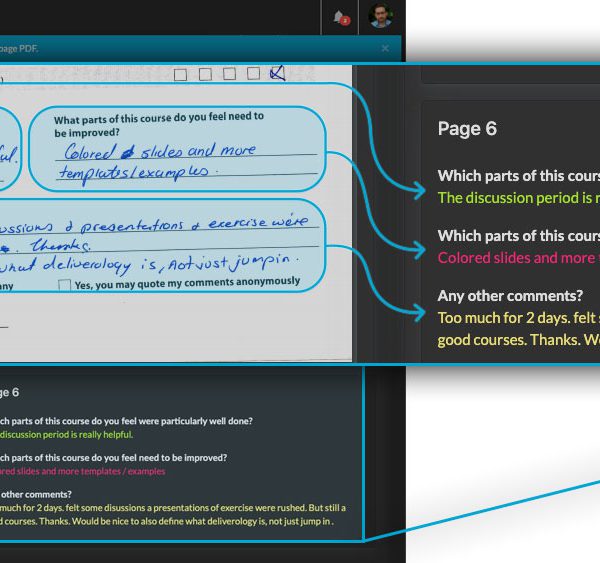 2
page PDF.
×
What parts of this course do you feel need to
be improved?
Colored slides and more
templates/examples.
ul.
ussions & presentations & exercise were
Thanks.
what deliverology is, not just jump in.
any
Yes, you may quote my comments anonymously
Page 6
Which parts of this cours
The discussion period is r
Which parts of this cours
Colored slides and more
Any other comments?
Too much for 2 days. felt s
good courses. Thanks. Wo
ge 6
ch parts of this course do you feel were particularly well done?
discussion period is really helpful.
ch parts of this course do you feel need to be improved?
ored slides and more templates / examples
other comments?
much for 2 days. felt some disussions a presentations of exercise were rushed. But still a
d courses. Thanks. Would be nice to also define what deliverology is, not just jump in .